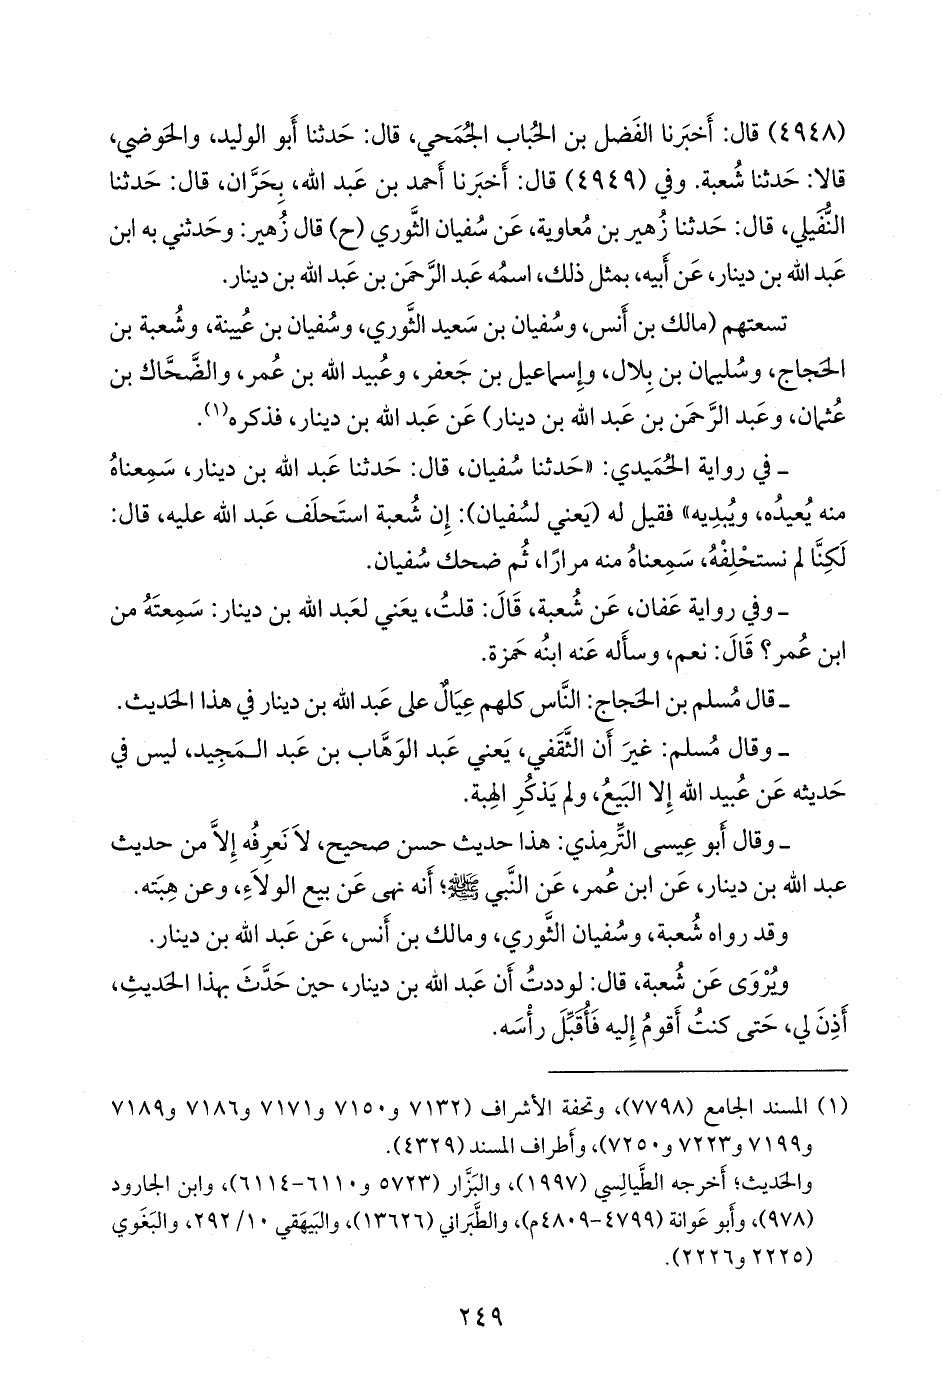 (٤٩٤٨) قال: أَخبَرنا الفَضل بن الحُباب الجُمَحي، قال: حَدثنا أبو الوليد، والحَوضي،
قالا: حَدثنا شُعبة. وفي (٤٩٤٩) قال: أَخبَرنا أحمد بن عَبد الله، بِحَرَّان، قال: حَدثنا
النُّفَيلي، قال: حَدثنا زُهير بن مُعاوية، عَن سُفيان الثَّوري (ح) قال زُهير: وحَدثني به ابن
عَبد الله بن دينار، عَن أَبيه، بمثل ذلك، اسمُه عَبد الرَّحمَن بن عَبد الله بن دينار.
تسعتهم (مالك بن أَنس، وسُفيان بن سَعيد الثَّوري، وسُفيان بن عُيينة، وشُعبة بن
الحَجاج، وسُليمان بن بِلال، وإسماعيل بن جَعفر، وعُبيد الله بن عُمر، والضَّحَّاك بن
عُثمان، وعَبد الرَّحمَن بن عَبد الله بن دينار) عَن عَبد الله بن دينار، فذكره(١).
ـ في رواية الحُمَيدي: «حَدثنا سُفيان، قال: حَدثنا عَبد الله بن دينار، سَمِعناهُ
منه يُعيدُه، ويُبدِيه» فقيل له (يَعني لسُفيان): إِن شُعبة استَحلَف عَبد الله عليه، قال:
لَكِنَّا لم نستحْلِفْهُ، سَمِعناهُ منه مرارًا، ثُم ضحك سُفيان.
ـ وفي رواية عَفان، عَن شُعبة، قَالَ: قلتُ، يعَني لعَبد الله بن دينار: سَمِعتَهُ من
ابن عُمر؟ قَالَ: نعم، وسأَله عَنه ابنُه حَمزة.
ـ قال مُسلم بن الحَجاج: النَّاس كلهم عِيَالٌ على عَبد الله بن دينار في هذا الحَديث.
ـ وقال مُسلم: غيرَ أَن الثَّقَفي، يَعني عَبد الوَهَّاب بن عَبد الـمَجيد، ليس في
حَديثه عَن عُبيد الله إِلا البَيعُ، ولم يَذكُرِ الهِبة.
ـ وقال أَبو عِيسى التِّرمِذي: هذا حَديث حسن صحيح، لاَ نَعرِفُه إِلاَّ من حَديث
عبد الله بن دينار، عَن ابن عُمر، عَن النَّبي ﷺ؛ أَنه نهى عَن بيع الولاَءِ، وعن هِبَته.
وقد رواه شُعبة، وسُفيان الثَّوري، ومالك بن أَنس، عَن عَبد الله بن دينار.
ويُرْوَى عَن شُعبة، قال: لوددتُ أَن عَبد الله بن دينار، حين حَدَّثَ بهذا الحَديثِ،
أَذِنَ لي، حَتى كنتُ أَقومُ إِليه فَأُقَبِّلَ رأْسَه.
(١) المسند الجامع (٧٧٩٨)، وتحفة الأشراف (٧١٣٢ و٧١٥٠ و٧١٧١ و٧١٨٦ و٧١٨٩
و٧١٩٩ و٧٢٢٣ و٧٢٥٠)، وأطراف المسند (٤٣٢٩).
والحَديث؛ أخرجه الطَّيالِسي (١٩٩٧)، والبَزَّار (٥٧٢٣ و٦١١٠-٦١١٤)، وابن الجارود
(٩٧٨)، وأبو عَوانة (٤٧٩٩-٤٨٠٩م)، والطَّبَراني (١٣٦٢٦)، والبَيهَقي ١٠/ ٢٩٢، والبَغَوي
(٢٢٢٥ و٢٢٢٦).
٢٤٩